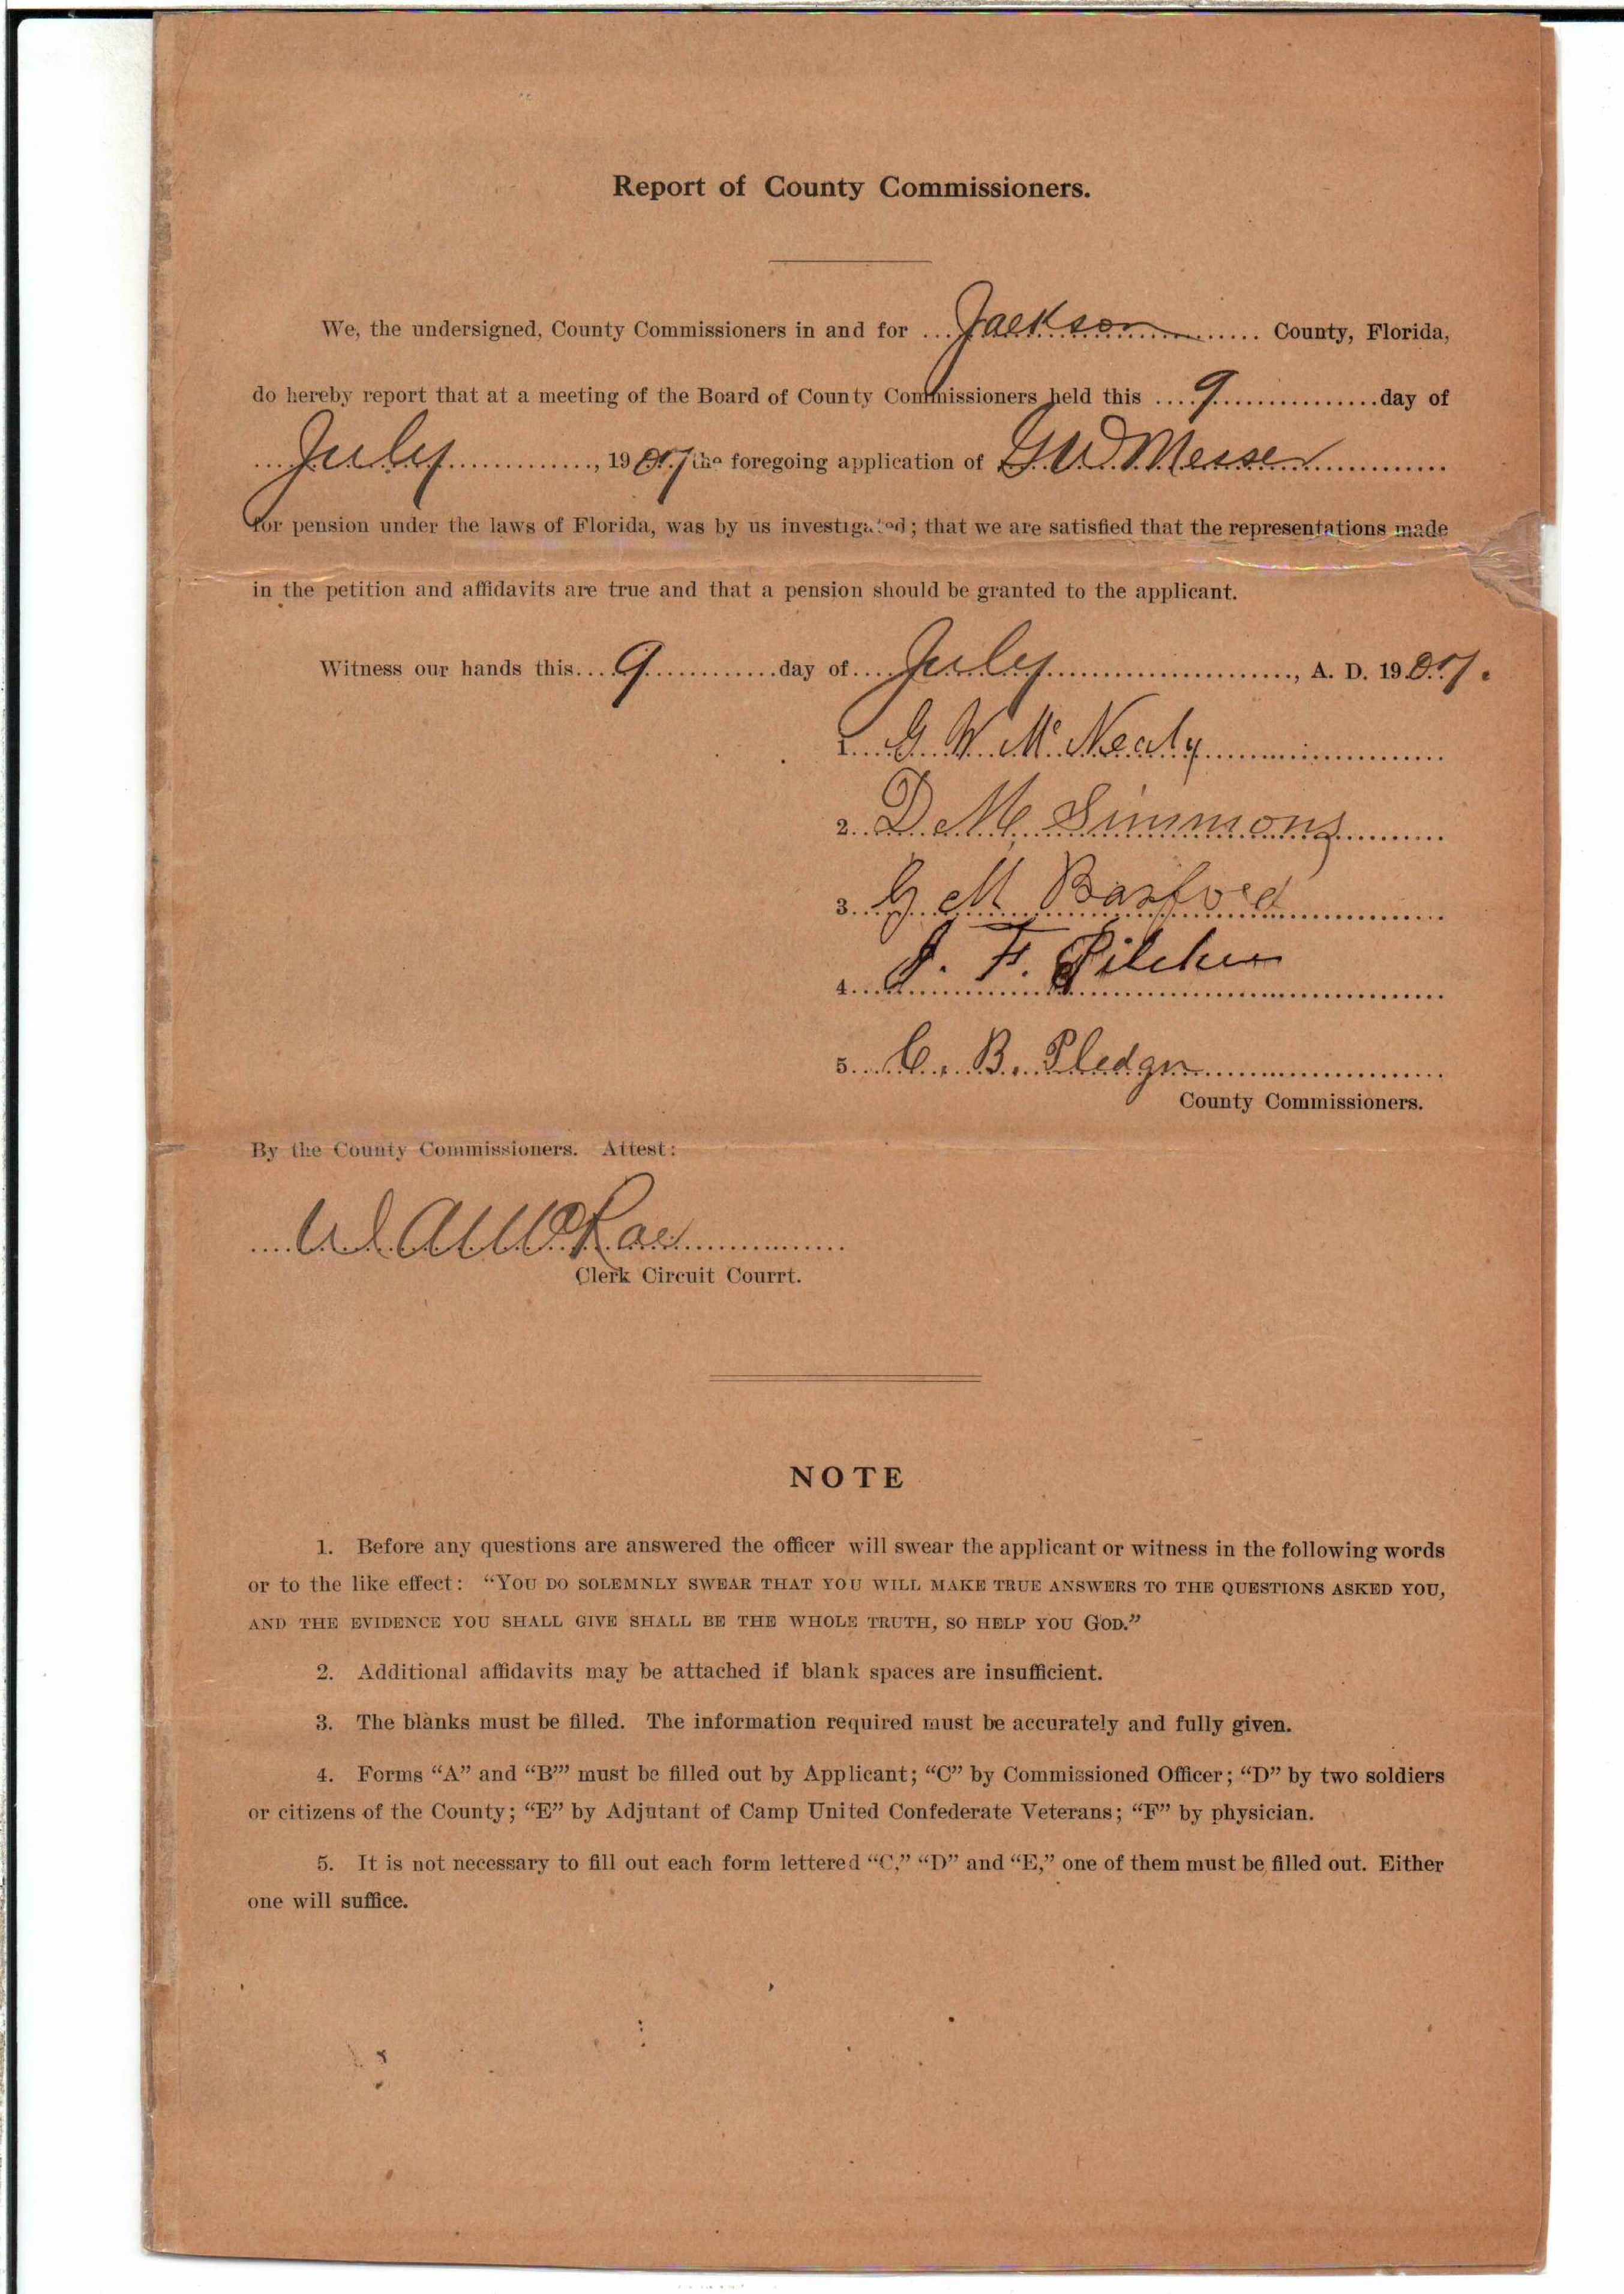 Report of County Commissioners.
We, the undersigned, County Commissioners in and for ... Jackson ... County, Florida,
do hereby report that at a meeting of the Board of County Commissioners held this .... 9 .... day of
... July ..., 1907 the foregoing application of G. W. Messer ...
for pension under the laws of Florida, was by us investigated; that we are satisfied that the representations made
in the petition and affidavits are true and that a pension should be granted to the applicant.
Witness our hands this.... 9 .... day of.... July ...., A. D. 1907.
1. G. W. McNealy
2. D. M. Simmons
3. G M Basford
4. J. F. Pilcher
5. C. B. Pledger
County Commissioners.
By the County Commissioners. Attest:
Clerk Circuit Courrt.
NOTE
1. Before any questions are answered the officer will swear the applicant or witness in the following words
or to the like effect: “YOU DO SOLEMNLY SWEAR THAT YOU WILL MAKE TRUE ANSWERS TO THE QUESTIONS ASKED YOU,
AND THE EVIDENCE YOU SHALL GIVE SHALL BE THE WHOLE TRUTH, SO HELP YOU GOD.”
2. Additional affidavits may be attached if blank spaces are insufficient.
3. The blanks must be filled. The information required must be accurately and fully given.
4. Forms “A” and “B’” must be filled out by Applicant; “C” by Commissioned Officer; “D” by two soldiers
or citizens of the County; “E” by Adjutant of Camp United Confederate Veterans; “F” by physician.
5. It is not necessary to fill out each form lettered “C,” “D” and “E,” one of them must be filled out. Either
one will suffice.